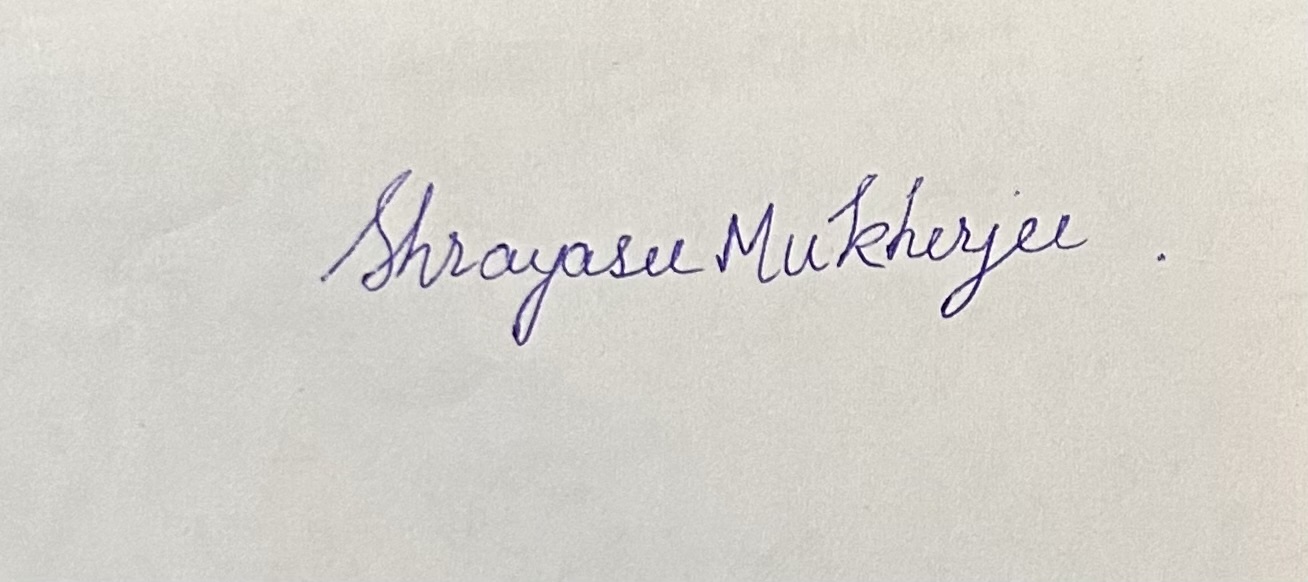 Shrayasee Mukherjee.